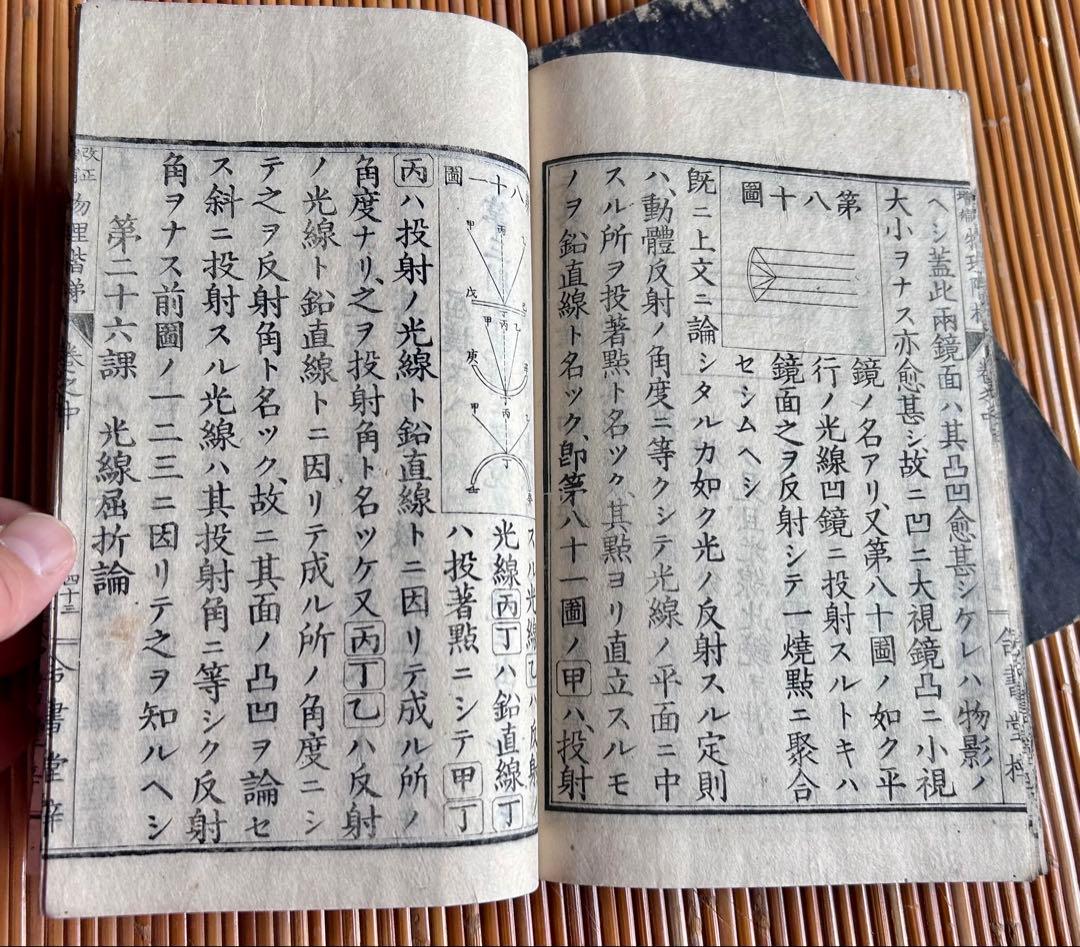 ヘシ蓋此兩鏡面ハ其凸凹愈甚シケレハ物影ノ
大小ヲナス亦愈甚シ、故ニ凹ニ大視鏡凸ニ小視
第八十圖
鏡ノ名アリ、又第八十圖ノ如ク平
行ノ光線凹鏡ニ投射スルトキハ
鏡面之ヲ反射シテ一燒點ニ聚合
セシムヘシ
既ニ上文ニ論シタルカ如ク光ノ反射スル定則
ハ、動體反射ノ角度ニ等クシテ光線ノ平面ニ中
スル所ヲ投著點ト名ツク、其點ヨリ直立スルモ
ノヲ鉛直線ト名ツク、卽第八十一圖ノ甲ハ、投射
八十一圖
甲 丙
戊 丁 己
甲 丙 乙
庚
甲 丙
丁
スル光線乙ハ反射ノ
光線丙丁ハ鉛直線丁
ハ投著點ニシテ甲丁
丙ハ投射ノ光線ト鉛直線トニ因リテ成ル所ノ
角度ナリ、之ヲ投射角ト名ツケ又丙丁乙ハ反射
ノ光線ト鉛直線トニ因リテ成ル所ノ角度ニシ
テ之ヲ反射角ト名ツク、故ニ其面ノ凸凹ヲ論セ
ス斜ニ投射スル光線ハ其投射角ニ等シク反射
角ヲナス前圖ノ一二三ニ因リテ之ヲ知ルヘシ
第二十六課 光線屈折論
改正 物理階梯 卷之中 四十二